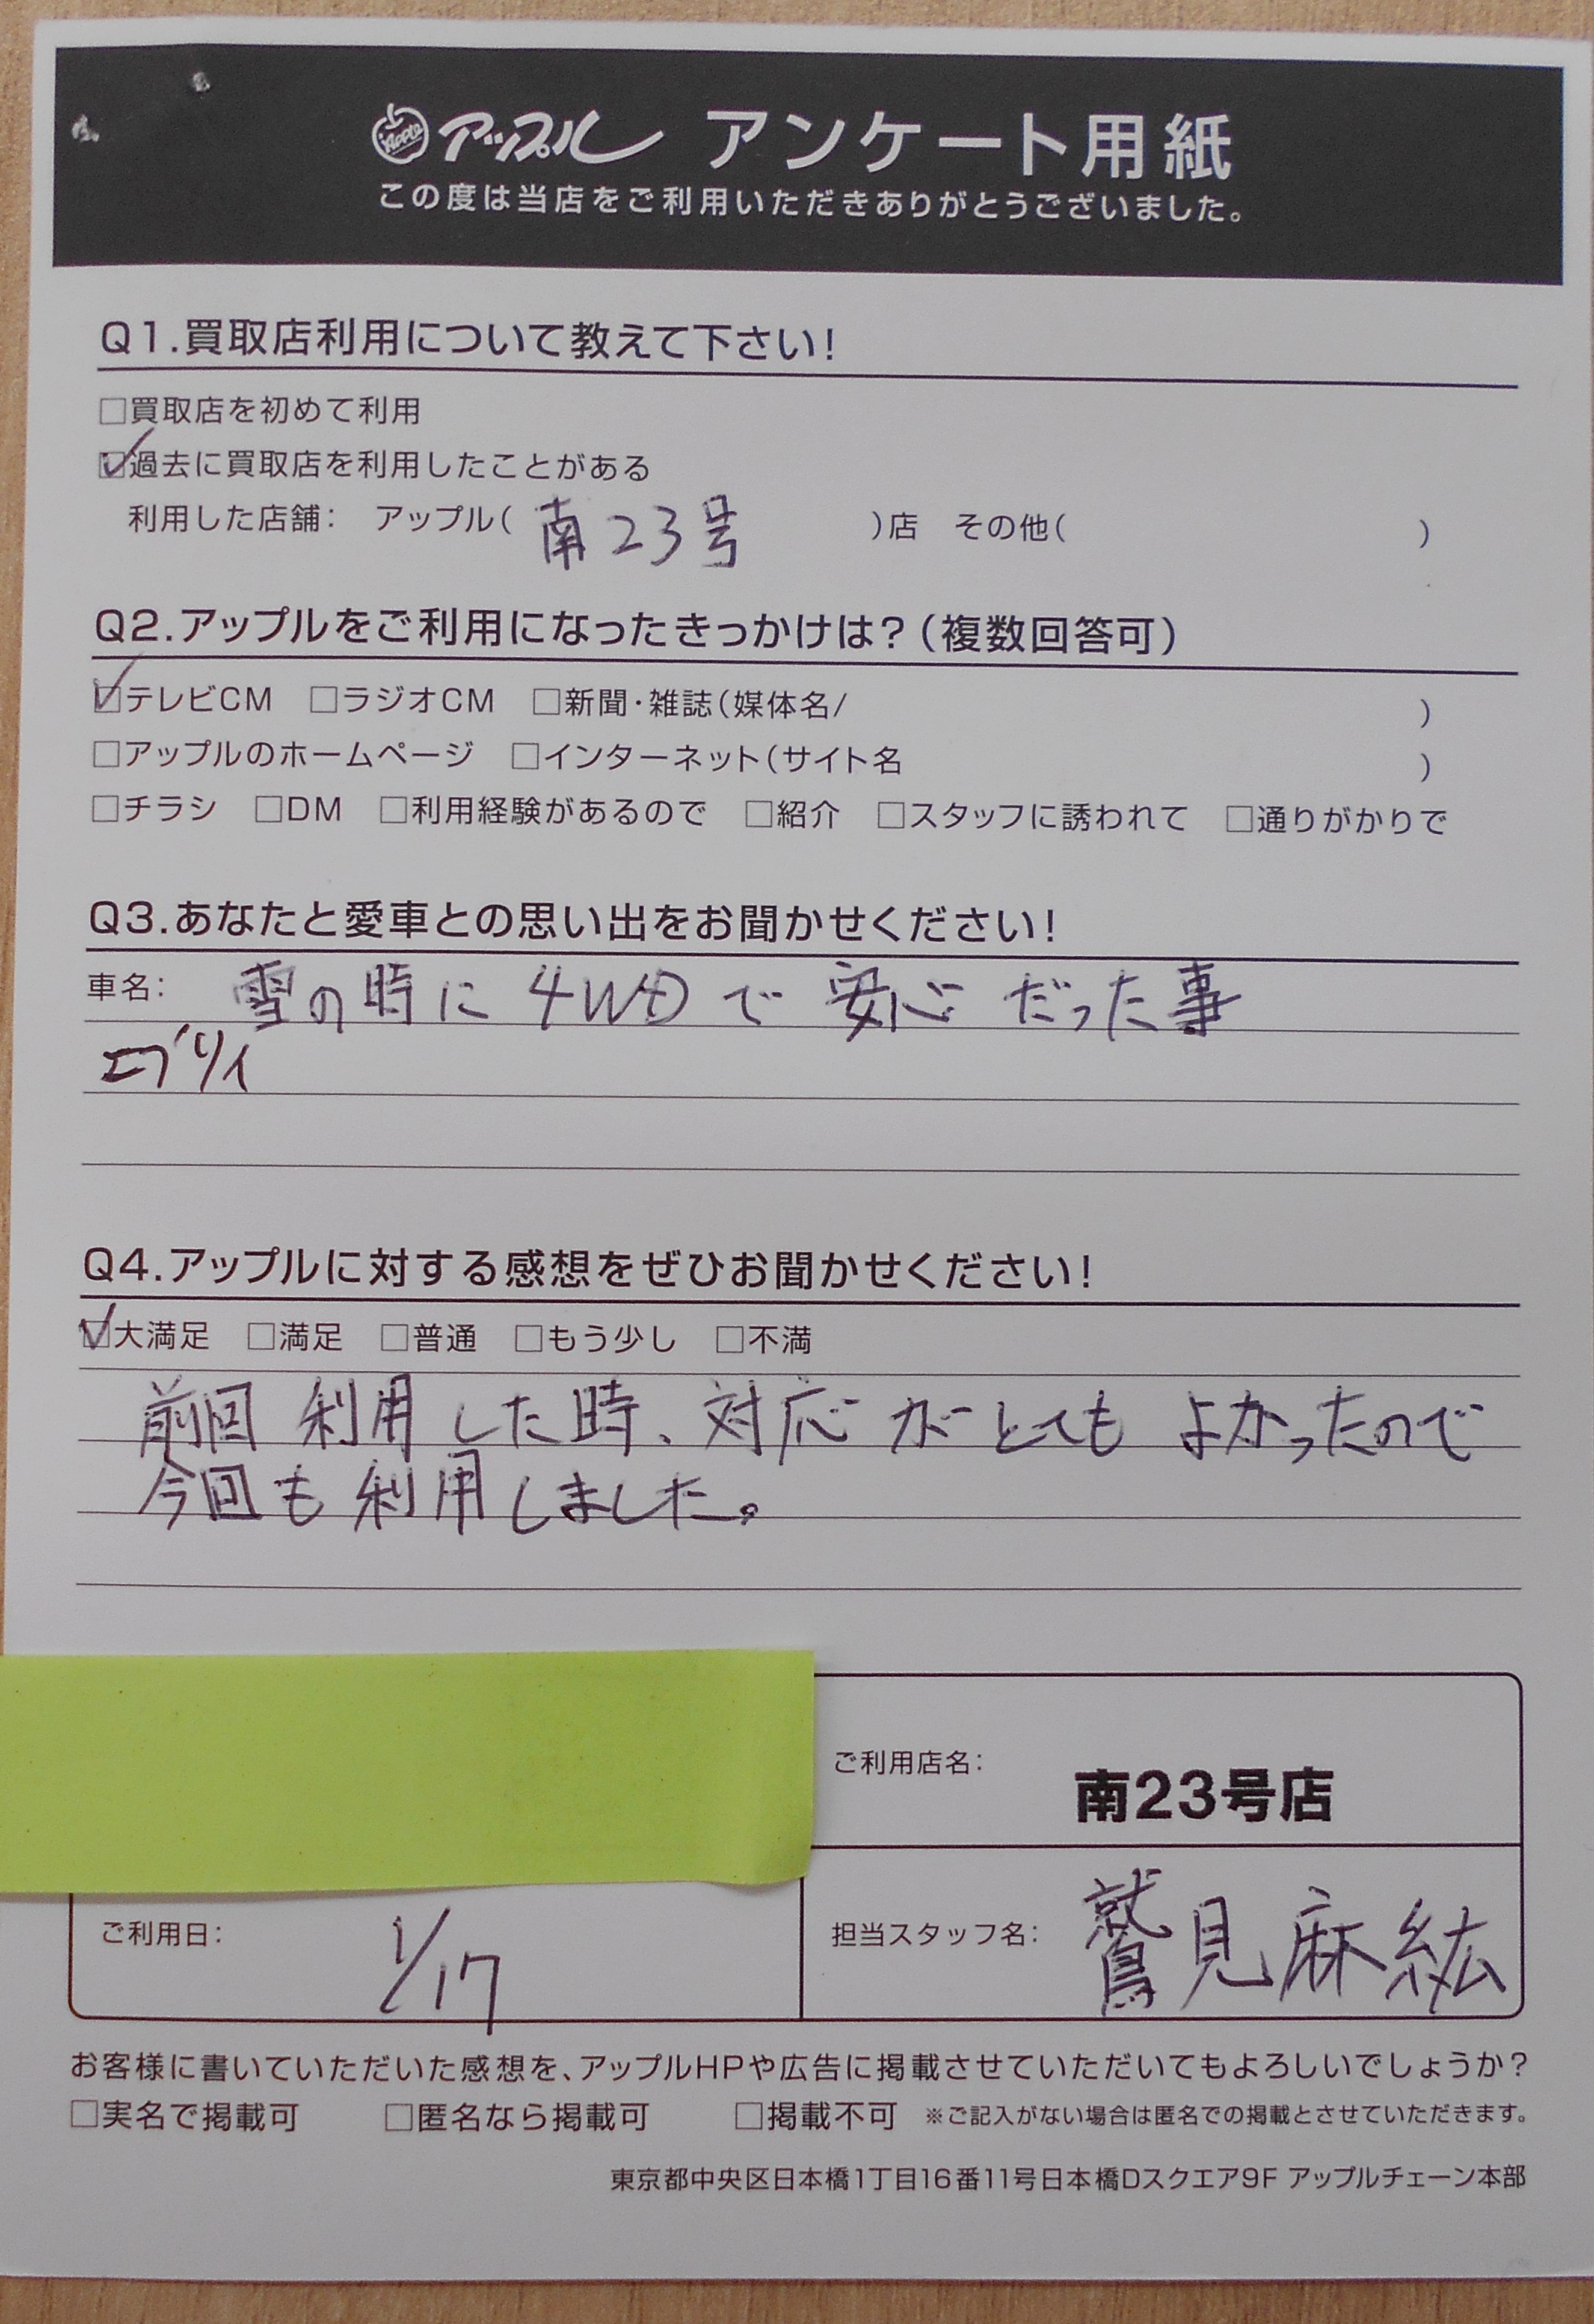 Apple アップル アンケート用紙
この度は当店をご利用いただきありがとうございました。
Q1.買取店利用について教えて下さい！
□買取店を初めて利用
☑過去に買取店を利用したことがある
利用した店舗： アップル（ 南23号 ）店 その他（ ）
Q2.アップルをご利用になったきっかけは？（複数回答可）
☑テレビCM □ラジオCM □新聞・雑誌（媒体名/ ）
□アップルのホームページ □インターネット（サイト名 ）
□チラシ □DM □利用経験があるので □紹介 □スタッフに誘われて □通りがかりで
Q3.あなたと愛車との思い出をお聞かせください！
車名： 雪の時に4WDで安心だった事
エブリイ
Q4.アップルに対する感想をぜひお聞かせください！
☑大満足 □満足 □普通 □もう少し □不満
前回利用した時、対応がとてもよかったので
今回も利用しました。
ご利用店名： 南23号店
ご利用日： 1/17
担当スタッフ名： 鷲見麻紘
お客様に書いていただいた感想を、アップルHPや広告に掲載させていただいてもよろしいでしょうか？
□実名で掲載可 □匿名なら掲載可 □掲載不可 ※ご記入がない場合は匿名での掲載とさせていただきます。
東京都中央区日本橋1丁目16番11号日本橋Dスクエア9F アップルチェーン本部